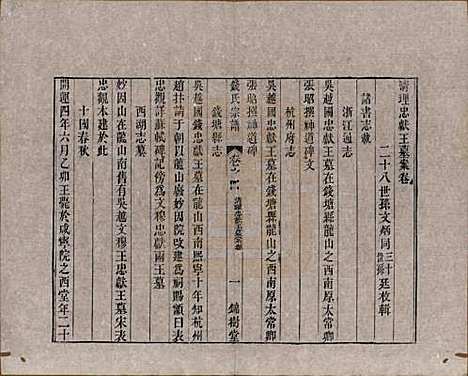 清理忠獻王墓案卷
二十八世孫文炳同三十世孫廷枚輯
諸書志載
浙江通志
吳越國忠獻王墓在錢塘縣龍山之西南原太常卿
張昭撰神道碑文
杭州府志
吳越國忠獻王墓在錢塘縣龍山之西南原太常卿
張昭撰神道碑
錢氏宗譜
卷之
一
錦樹堂
錢塘縣志
吳越國忠獻王錢墓在龍山西南熙寧十年知杭州
趙抃請于朝以龍山廢妙因院改建為祠賜額曰表
忠觀詳蘇軾碑記傍為文穆忠獻兩王墓
西湖志墓
妙因山在龍山南舊有吳越文穆王忠獻王墓宋表
忠觀本建於此
十國春秋
開運四年六月乙卯王薨於咸寧院之西堂年二十